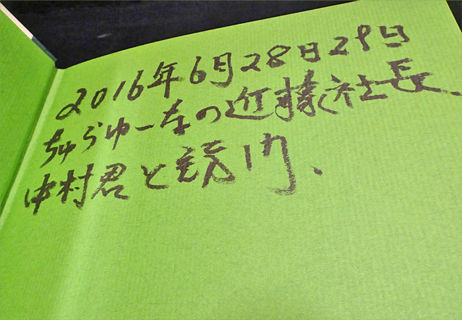 2016年6月28日29日
ちゅらゆーなの近藤社長、
中村君と訪門、